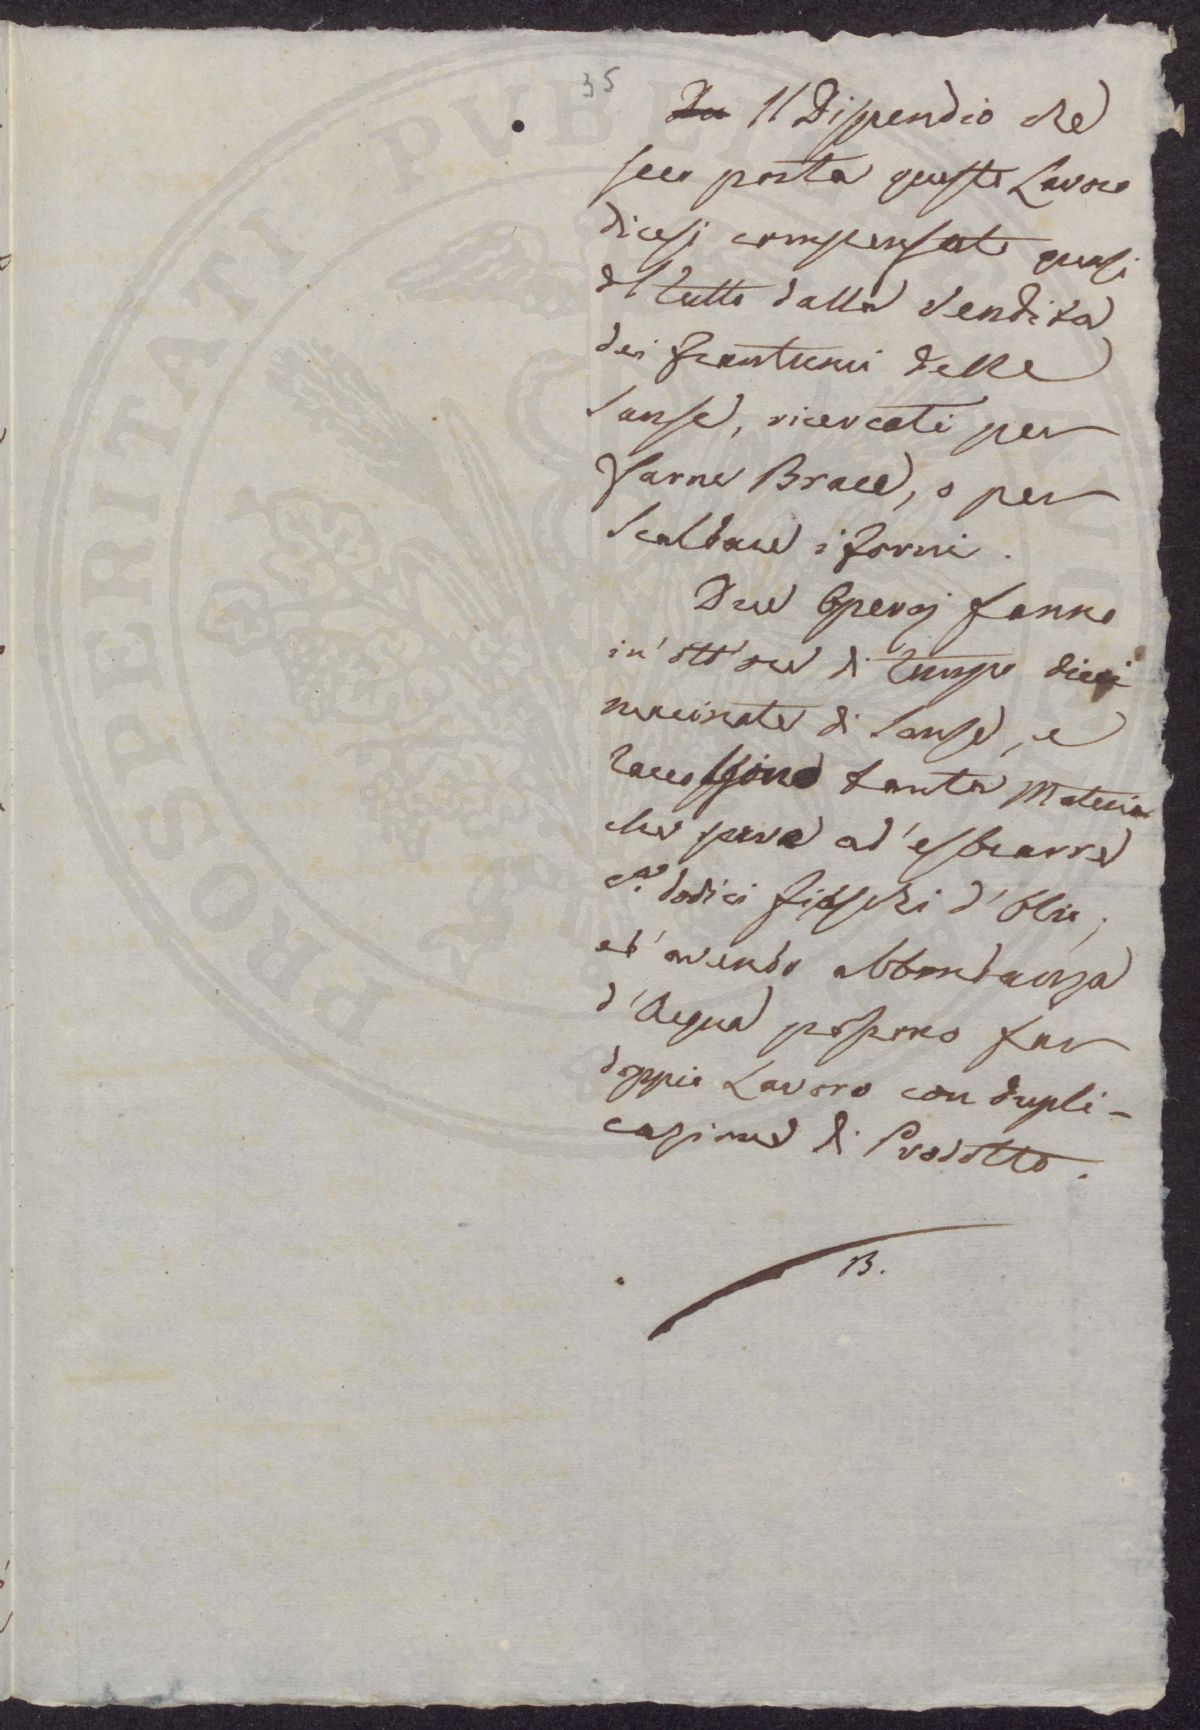 35
Du Il Dispendio che
seco porta questo Lavoro
dicesi compensato quasi
del tutto dalla vendita
dei frantumi delle
Sanse, ricercati per
farne Brace, o per
Scaldare i forni.
Due Operaj fanno
in' ott' ore di tempo dieci
macinate di Sanse, e
raccolgono tanta Materia
che serve ad' estrarre
ca. dodici fiaschi d' Olio;
ed' avendo abbondanza
d' Acqua possono far
doppio Lavoro con dupli-
cazione di Prodotto.
B.
PROSPERITATI PVBLI